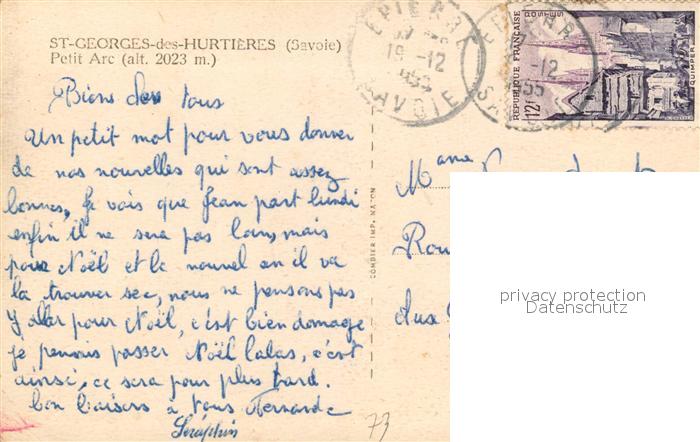 ST-GEORGES-des-HURTIÈRES (Savoie)
Petit Arc (alt. 2023 m.)
Biens chers tous
Un petit mot pour vous donner
de nos nouvelles qui sont assez
bonnes, je vois que Jean part lundi
enfin il ne sera pas loin, mais
pour Noël et le nouvel an il va
la trouver sec, nous ne pensons pas
y aller pour Noël, c'est bien domage
je pensais passer Noël labas, c'est
ainsi, ce sera pour plus tard.
bon baisers à vous Fernande
Séraphin
73
COMBIER IMP. MACON
EPIERRE
19-12
1955
SAVOIE
EPIERRE
-12
1955
POSTES
REPUBLIQUE FRANÇAISE
12F
QUIMPER
Mame
Rou
Aux
privacy protection
Datenschutz